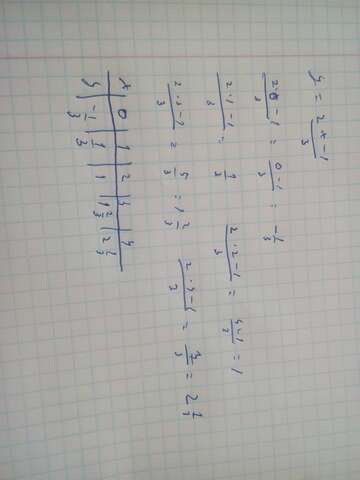 y = 2x-1/3
2·0-1/3 = 0-1/3 = -1/3
2·1-1/3 = 1/3 2·2-1/3 = 4-1/3 = 1
2·3-1/3 = 5/3 = 1 2/3 2·4-1/3 = 7/3 = 2 1/3
x | 0 | 1 | 2 | 3 | 4
y | -1/3 | 1/3 | 1 | 1 2/3 | 2 1/3